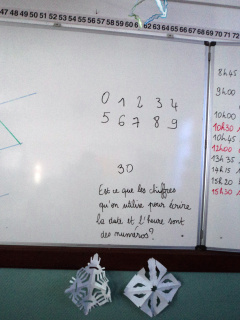 47 48 49 50 51 52 53 54 55 56 57 58 59 60 61 62 63 64 65 66 67 68 69 70 71 72
0 1 2 3 4
5 6 7 8 9
30
Est ce que les chiffres
qu'on utilise pour écrire
la date et l'heure sont
des numéros?
8h45
9h00
10h00
10h30
10h45
12h00
13h35
14h15
15h20
15h30